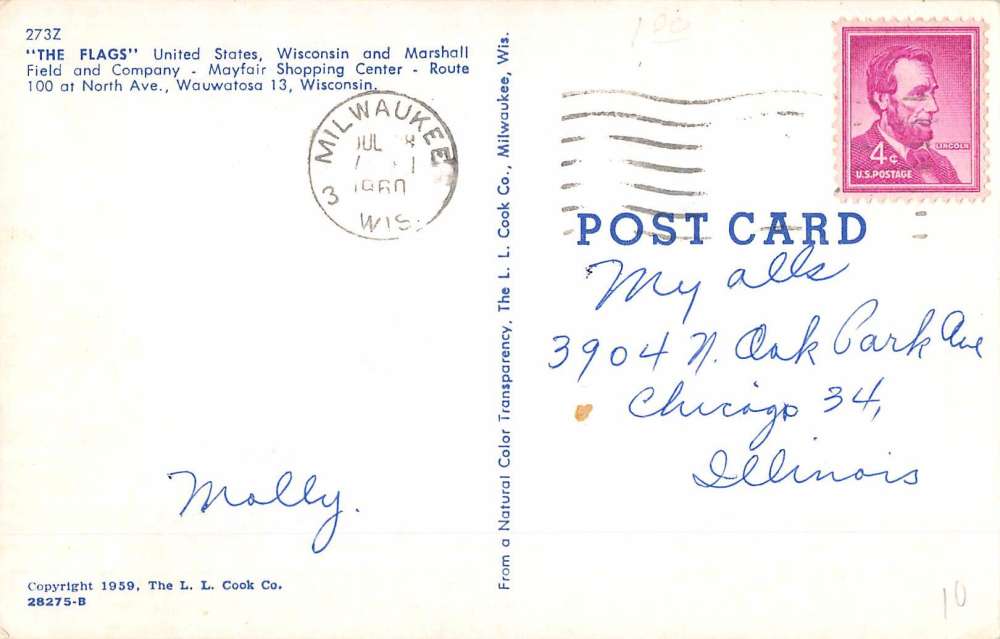 273Z
"THE FLAGS" United States, Wisconsin and Marshall
Field and Company - Mayfair Shopping Center - Route
100 at North Ave., Wauwatosa 13, Wisconsin.
MILWAUKEE
JUL
1960
3
WIS.
Molly.
Copyright 1959, The L. L. Cook Co.
28275-B
From a Natural Color Transparency, The L. L. Cook Co., Milwaukee, Wis.
100
LINCOLN
4¢
U.S. POSTAGE
POST CARD
My alls
3904 N. Oak Park Ave
Chicago 34,
Illinois
10